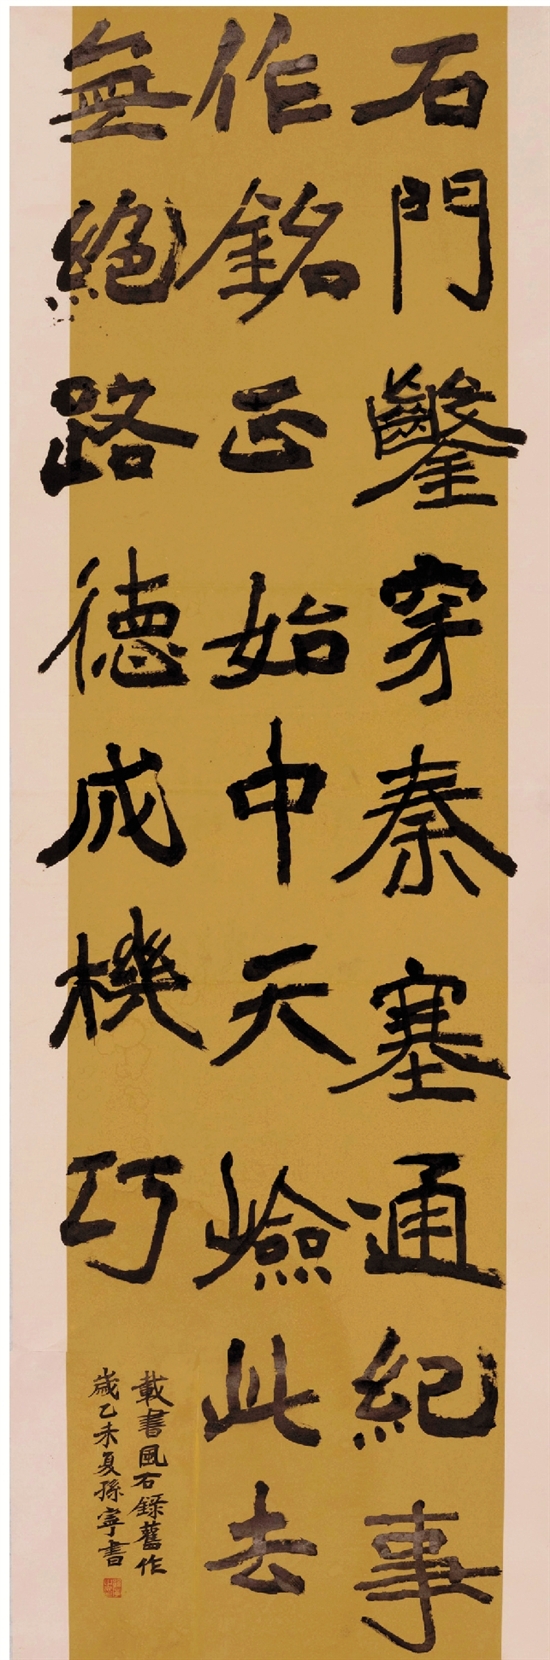 石門鑿穿秦塞通紀事
作銘正始中天嶮此去
無絕路德成機巧
載書風石錄舊作
歲乙未夏孫寧書